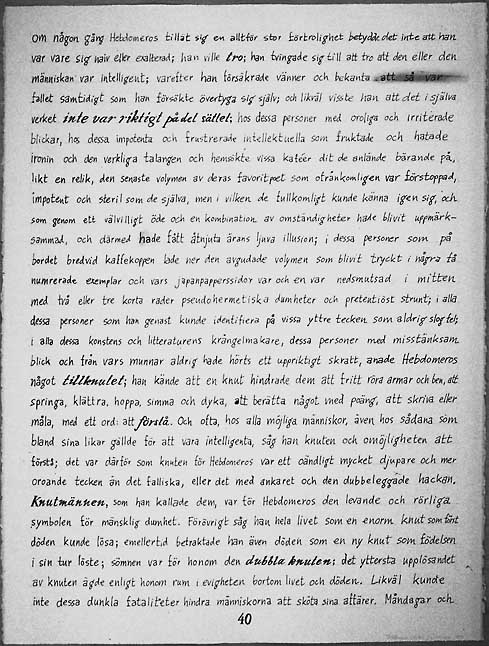 Om någon gång Hebdomeros tillät sig en alltför stor förtrolighet betydde det inte att han
var vare sig naiv eller exalterad; han ville tro; han tvingade sig till att tro att den eller den
människan var intelligent; varefter han försäkrade vänner och bekanta att så var
fallet samtidigt som han försökte övertyga sig själv; och likväl visste han att det i själva
verket inte var riktigt på det sättet; hos dessa personer med oroliga och irriterade
blickar, hos dessa impotenta och frustrerade intellektuella som fruktade och hatade
ironin och den verkliga talangen och hemsökte vissa kaféer dit de anlände bärande på,
likt en relik, den senaste volymen av deras favoritpoet som ofrånkomligen var förstoppad,
impotent och steril som de själva, men i vilken de fullkomligt kunde känna igen sig, och
som genom ett välvilligt öde och en kombination av omständigheter hade blivit uppmärk-
sammad, och därmed hade fått åtnjuta ärans ljuva illusion; i dessa personer som på
bordet bredvid kaffekoppen lade ner den avgudade volymen som blivit tryckt i några få
numrerade exemplar och vars japanpapperssidor var och en var nedsmutsad i mitten
med två eller tre korta rader pseudohermetiska dumheter och pretentiöst strunt; i alla
dessa personer som han genast kunde identifiera på vissa yttre tecken som aldrig slog fel;
i alla dessa konstens och litteraturens krångelmakare, dessa personer med misstänksam
blick och från vars munnar aldrig hade hörts ett uppriktigt skratt, anade Hebdomeros
något tillknutet; han kände att en knut hindrade dem att fritt röra armar och ben, att
springa, klättra, hoppa, simma och dyka, att berätta något med poäng, att skriva eller
måla, med ett ord: att förstå. Och ofta, hos alla möjliga människor, även hos sådana som
bland sina likar gällde för att vara intelligenta, såg han knuten och omöjligheten att
förstå; det var därför som knuten för Hebdomeros var ett oändligt mycket djupare och mer
oroande tecken än det falliska, eller det med ankaret och den dubbeleggade hackan.
Knutmännen, som han kallade dem, var för Hebdomeros den levande och rörliga
symbolen för mänsklig dumhet. Förövrigt såg han hela livet som en enorm knut som först
döden kunde lösa; emellertid betraktade han även döden som en ny knut som födelsen
i sin tur löste; sömnen var för honom den dubbla knuten; det yttersta upplösandet
av knuten ägde enligt honom rum i evigheten bortom livet och döden. Likväl kunde
inte dessa dunkla fataliteter hindra människorna att sköta sina affärer. Måndagar och
40